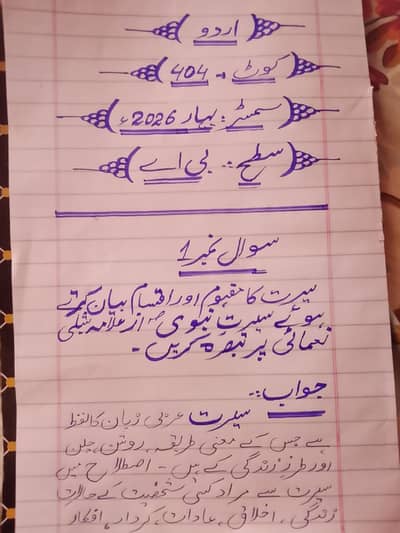 اردو
کوڈ :۔ 404
سمسٹر: بہار 2026ء
سطح :۔ بی اے
سوال نمبر 1
سیرت کا مفہوم اور اقسام بیان کرتے
ہوئے سیرت نبوی ؐ از علامہ شبلی
نعمانی پر تبصرہ کریں ۔
جواب :۔ سیرت عربی زبان کا لفظ
ہے جس کے معنی طریقہ ، روش ، چلن
اور طرز زندگی کے ہیں ۔ اصطلاح میں
سیرت سے مراد کسی شخصیت کے حالات
زندگی ، اخلاق ، عادات ، کردار ، افکار